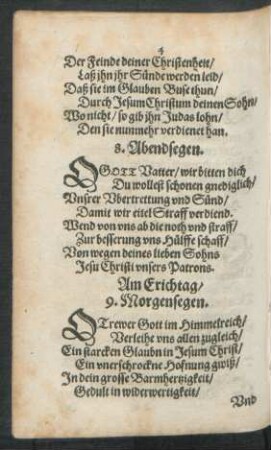 Der Feinde deiner Christenheit/
Laß jhn jhr Sünde werden leid/
Daß sie im Glauben Buse thun/
Durch Jesum Christum deinen Sohn/
Wo nicht/ so gib jhn Judas lohn/
Den sie nunmehr verdienet han.
8. Abendsegen.
O GOTT Vatter/ wir bitten dich
Du wollest schonen gnediglich/
Vnsrer Vbertrettung vnd Sünd/
Damit wir eitel Straff verdiend.
Wend von vns ab die noth vnd straff/
Zur besserung vns Hülffe schaff/
Von wegen deines lieben Sohns
Jesu Christi vnsers Patrons.
Am Erichtag/
9. Morgensegen.
O Trewer Gott im Himmelreich/
Verleihe vns allen zugleich/
Ein starcken Glaubn in Jesum Christ/
Ein vnerschrockne Hofnung gwiß/
In dein grosse Barmhertzigkeit/
Gedult in widerwertigkeit/
Vnd